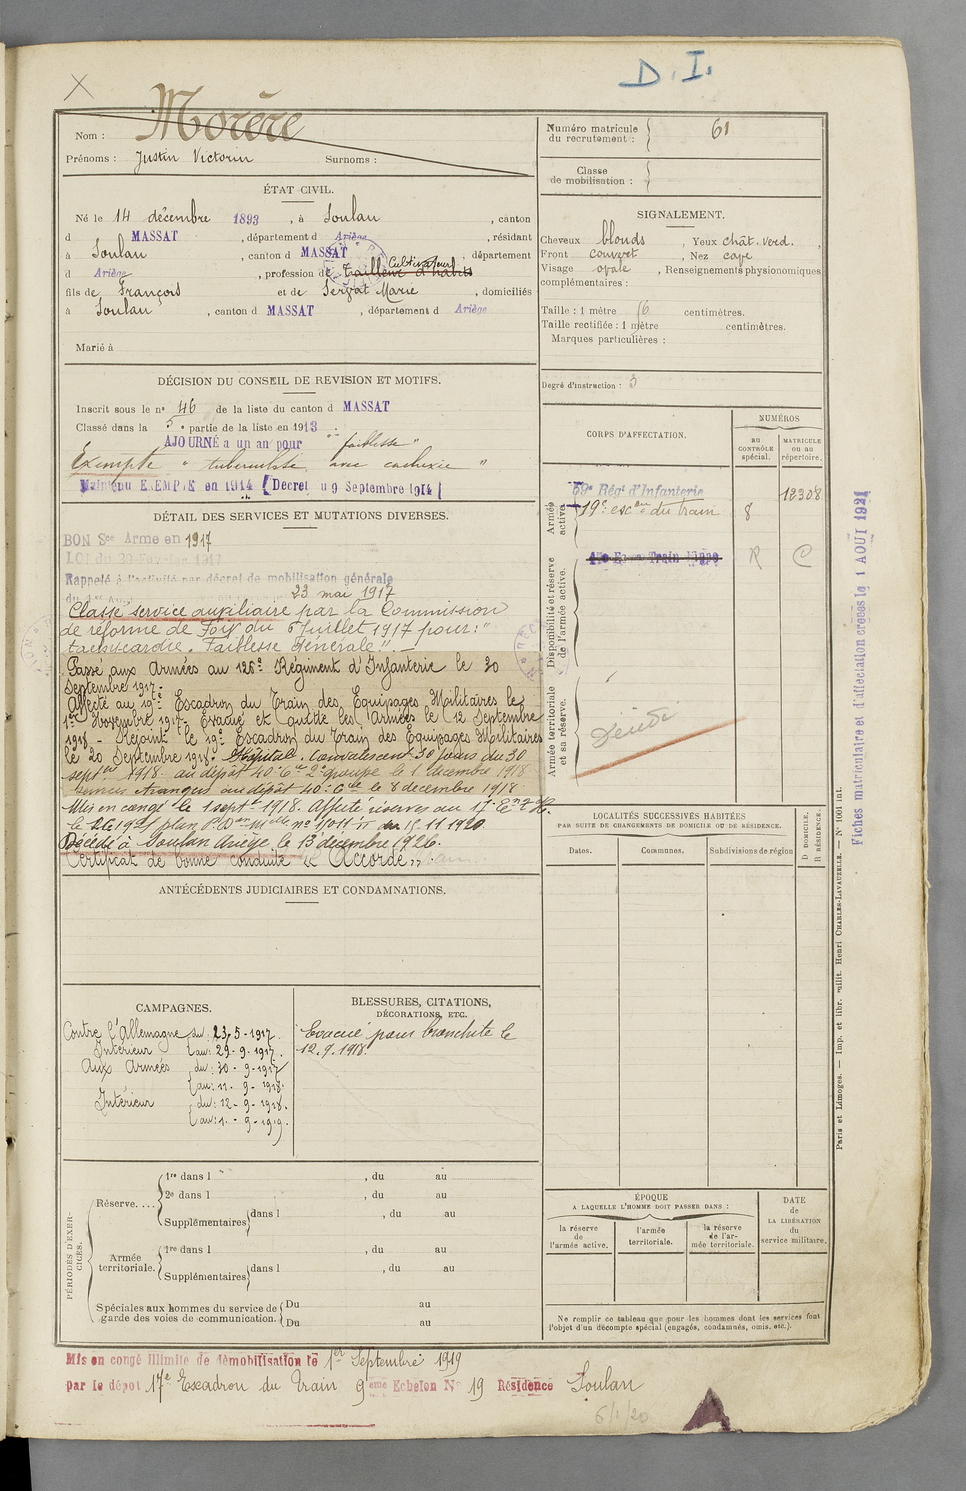 D. I.
Nom : Morère
Prénoms : Justin Victorin Surnoms :
Numéro matricule du recrutement : 61
Classe de mobilisation :
ÉTAT CIVIL.
Né le 14 décembre 1893, à Soulan, canton
d MASSAT, département d Ariège, résidant
à Soulan, canton d MASSAT, département
d Ariège, profession de Tailleur d'habits Cultivateur
fils de François et de Servat Marie, domiciliés
à Soulan, canton d MASSAT, département d Ariège
Marié à
SIGNALEMENT.
Cheveux blonds, Yeux chât. verd.,
Front couvert, Nez cave
Visage ovale, Renseignements physionomiques
complémentaires :
Taille : 1 mètre 56 centimètres.
Taille rectifiée : 1 mètre centimètres.
Marques particulières :
Degré d'instruction : 3
DÉCISION DU CONSEIL DE REVISION ET MOTIFS.
Inscrit sous le n° 46 de la liste du canton d MASSAT
Classé dans la 5e partie de la liste en 1913.
AJOURNÉ a un an pour "faiblesse"
Exempté "tuberculose avec cachexie"
Maintenu EXEMPTÉ en 1914 (Décret du 9 Septembre 1914)
DÉTAIL DES SERVICES ET MUTATIONS DIVERSES.
BON Sce Armé en 1917
LOI du 20 Février 1917
Rappelé à l'activité par décret de mobilisation générale
23 mai 1917
Classé service auxiliaire par la Commission
de réforme de Foix du 6 Juillet 1917 pour : "
tachycardie. Faiblesse Générale". —
Passé aux Armées au 126e Régiment d'Infanterie le 30
Septembre 1917 -
Affecté au 19e Escadron du Train des Equipages Militaires le
1er Novembre 1917 - Evacué et quitte les Armées le 12 Septembre
1918 - Rejoint le 19e Escadron du Train des Equipages Militaires
le 20 Septembre 1918. Hôpital. Convalescent 30 jours du 30
septbre 1918 au dépôt 40e Cie 2e groupe le 1 décembre 1918
au dépôt 40e Cie le 8 décembre 1918
Mis en congé le 1 septe 1918. Affecté réserves au 17e
le 1921 plan P. n° 1011 du 15.11.1920
Décédé à Soulan Ariège le 13 décembre 1926.
Certificat de bonne conduite "Accordé".
ANTÉCÉDENTS JUDICIAIRES ET CONDAMNATIONS.
CORPS D'AFFECTATION.
NUMÉROS
AU CONTRÔLE spécial.
MATRICULE ou au répertoire.
Armée active.
59e Régt d'Infanterie
19e escon du train 8 12308
Disponibilité et réserve de l'armée active.
R C
Armée territoriale et sa réserve.
Décédé
LOCALITÉS SUCCESSIVES HABITÉES
PAR SUITE DE CHANGEMENTS DE DOMICILE OU DE RÉSIDENCE.
Dates. Communes. Subdivisions de région D DOMICILE. R RÉSIDENCE.
CAMPAGNES.
Contre l'Allemagne du : 23-5-1917.
Intérieur au : 29-9-1917.
Aux Armées du : 30-9-1917
au : 11-9-1918.
Intérieur du : 12-9-1918.
au : 1-9-1919.
BLESSURES, CITATIONS,
DÉCORATIONS, ETC.
Evacué pour bronchite le
12.9.1918.
PÉRIODES D'EXERCICES.
Réserve....
1re dans l , du au
2e dans l , du au
Supplémentaires dans l , du au
Armée territoriale.
1re dans l , du au
Supplémentaires dans l , du au
Spéciales aux hommes du service de garde des voies de communication.
Du au
Du au
ÉPOQUE
A LAQUELLE L'HOMME DOIT PASSER DANS :
la réserve de l'armée active.
l'armée territoriale.
la réserve de l'armée territoriale.
DATE de LA LIBÉRATION du service militaire.
Ne remplir ce tableau que pour les hommes dont les services font
l'objet d'un décompte spécial (engagés, condamnés, omis, etc.).
Mis en congé illimité de démobilisation le 1er Septembre 1919
par le dépôt 17e Escadron du Train 9ème Echelon N° 19 Résidence Soulan
6/1/20
Fiches matriculaire et d'affectation créées le 1 AOUT 1921
Paris et Limoges. — Imp. et libr. milit. Henri CHARLES-LAVAUZELLE. — N° 1001 int.